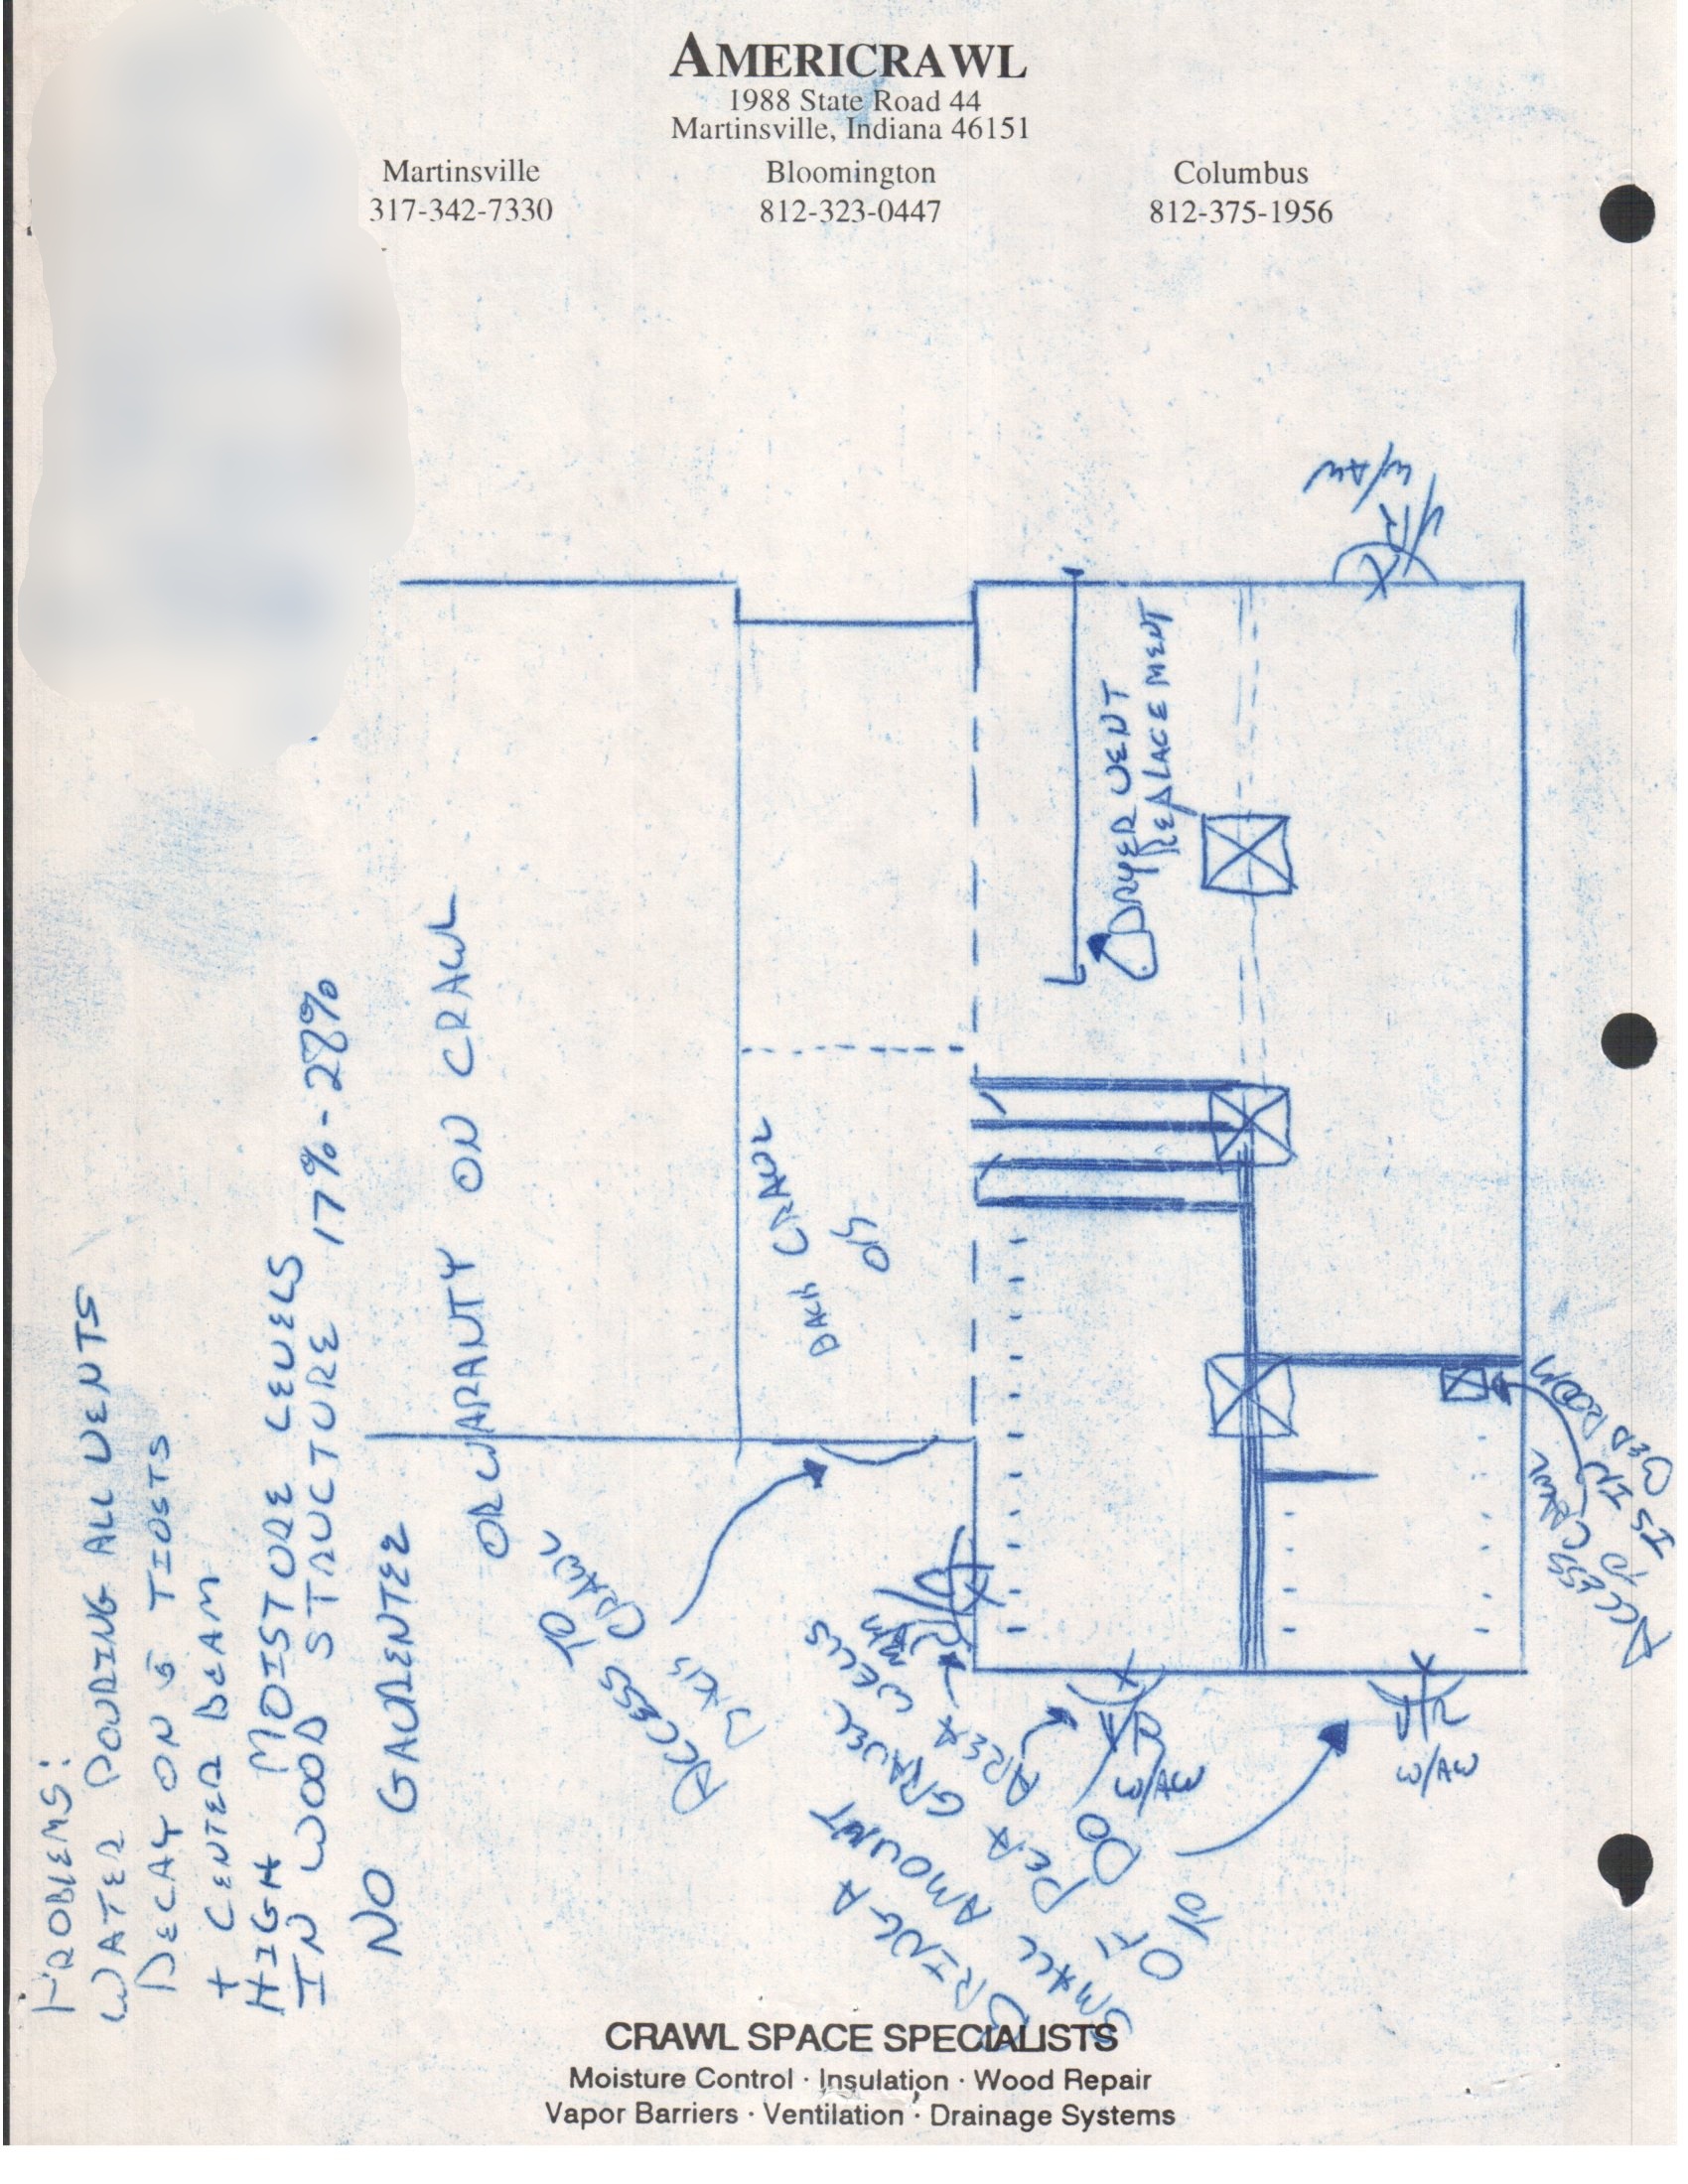 AMERICRAWL
1988 State Road 44
Martinsville, Indiana 46151
Martinsville Bloomington Columbus
317-342-7330 812-323-0447 812-375-1956
PROBLEMS:
WATER POURING ALL VENTS
DECAY ON 5 JIOSTS
+ CENTER BEAM
HIGH MOISTURE LEVELS
IN WOOD STRUCTURE 17%-22%
NO GAURENTEE
OR WARANTY ON CRAWL
ACCESS TO
CRAWL
CRAWL
DRYER VENT
REPLACEMENT
V/R
W/AW
BRING A
SMALL AMOUNT
OF PEA GRAVEL
DO AREA WELLS
V/R
W/AW
V/R
W/AW
ACCESS CRAWL
IS IN
BED ROOM
CRAWL SPACE SPECIALISTS
Moisture Control · Insulation · Wood Repair
Vapor Barriers · Ventilation · Drainage Systems